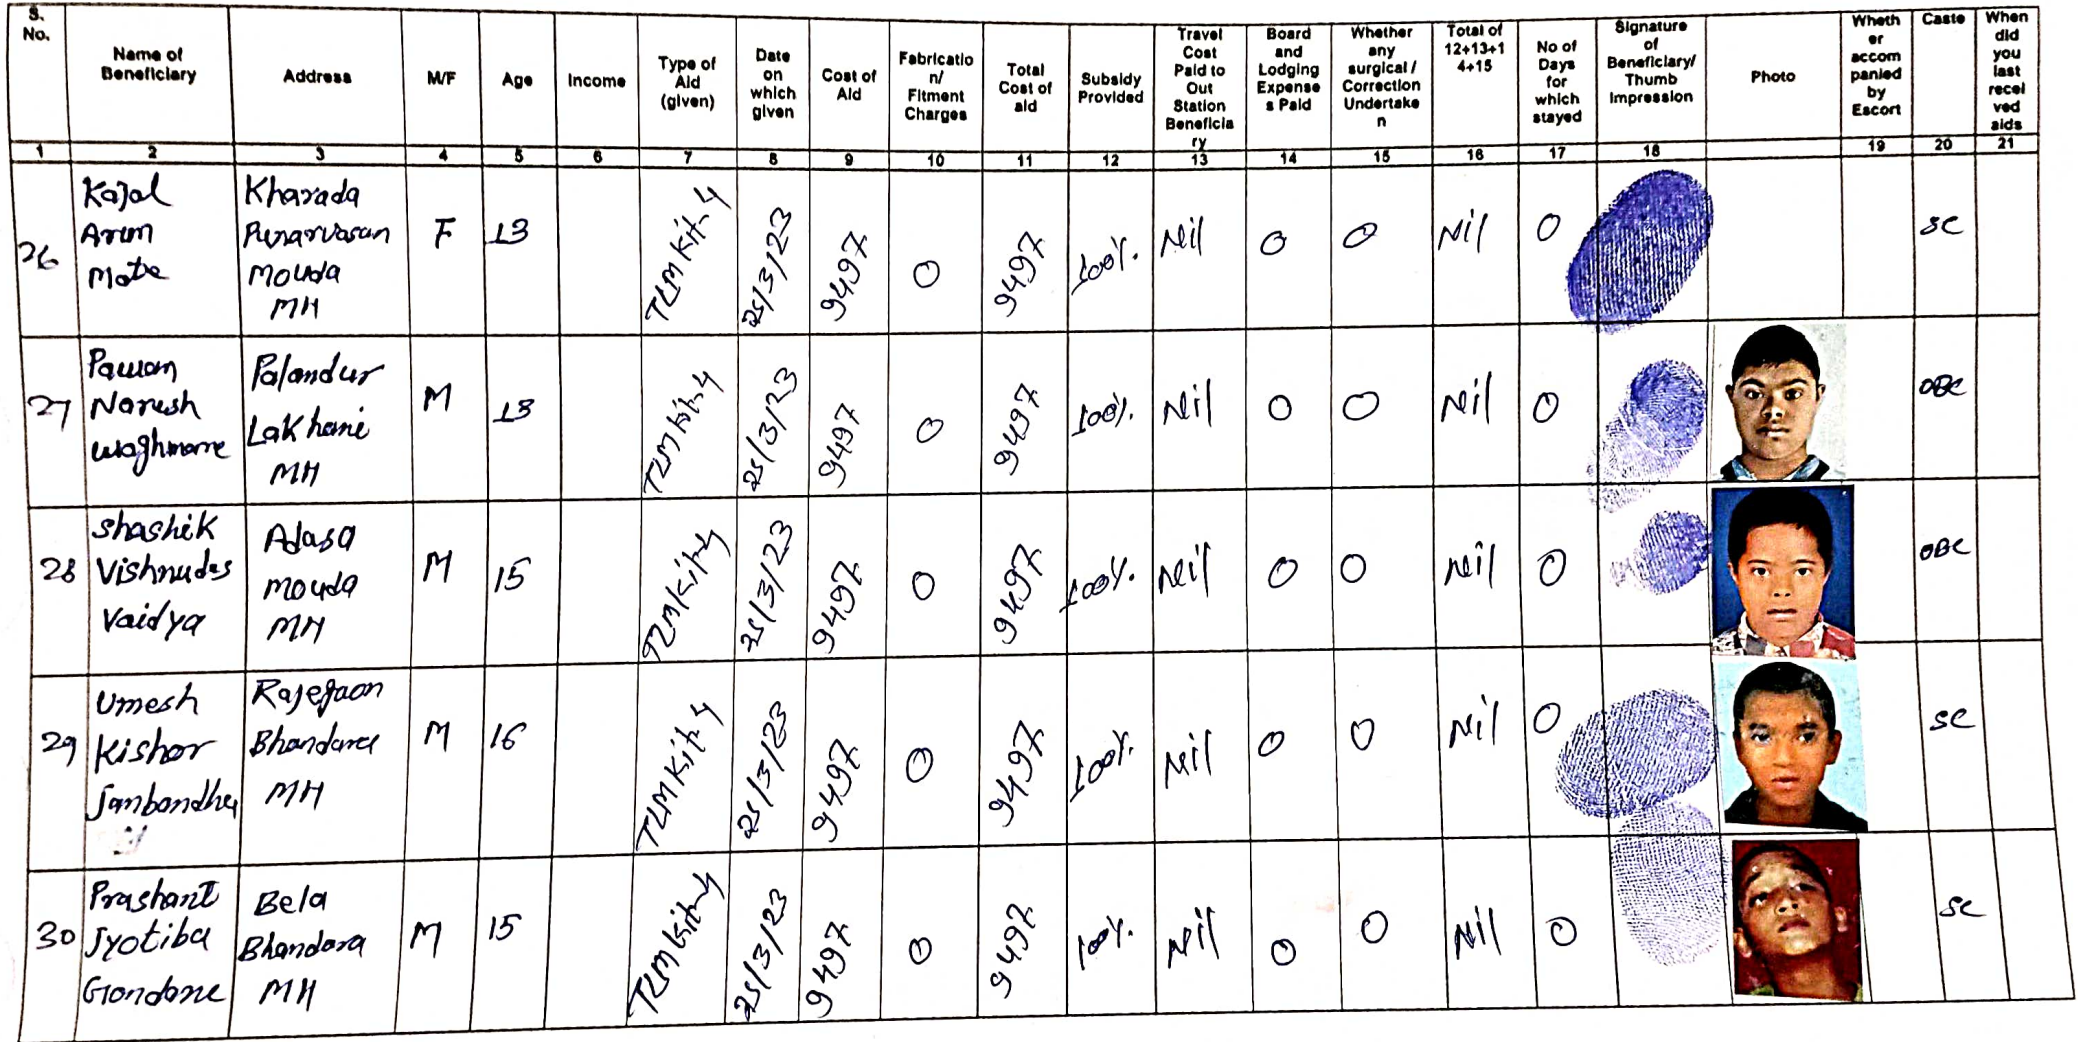 S. No.
Name of Beneficiary
Address
M/F
Age
Income
Type of Aid (given)
Date on which given
Cost of Aid
Fabricatio n/ Fitment Charges
Total Cost of aid
Subsidy Provided
Travel Cost Paid to Out Station Beneficia ry
Board and Lodging Expense s Paid
Whether any surgical / Correction Undertake n
Total of 12+13+1 4+15
No of Days for which stayed
Signature of Beneficiary/ Thumb Impression
Photo
Wheth er accom panied by Escort
Caste
When did you last recei ved aids
1 2 3 4 5 6 7 8 9 10 11 12 13 14 15 16 17 18 19 20 21
26 Kajal Arun Mate Kharada Punarvasan Mouda MH F 13 TLM Kit-4 25/3/23 9497 0 9497 100%. Nil 0 0 Nil 0 SC
27 Pawan Naresh Waghmare Palandur Lakhani MH M 13 TLM Kit-4 25/3/23 9497 0 9497 100%. Nil 0 0 Nil 0 OBC
28 Shashik Vishnudas Vaidya Adasa Mouda MH M 15 TLM Kit-4 25/3/23 9497 0 9497 100%. Nil 0 0 Nil 0 OBC
29 Umesh Kishor Rajegaon Bhandara MH M 16 TLM Kit-4 25/3/23 9497 0 9497 100%. Nil 0 0 Nil 0 SC
30 Prashant Jyotiba Gondane Bela Bhandara MH M 15 TLM Kit-4 25/3/23 9497 0 9497 100%. Nil 0 0 Nil 0 SC